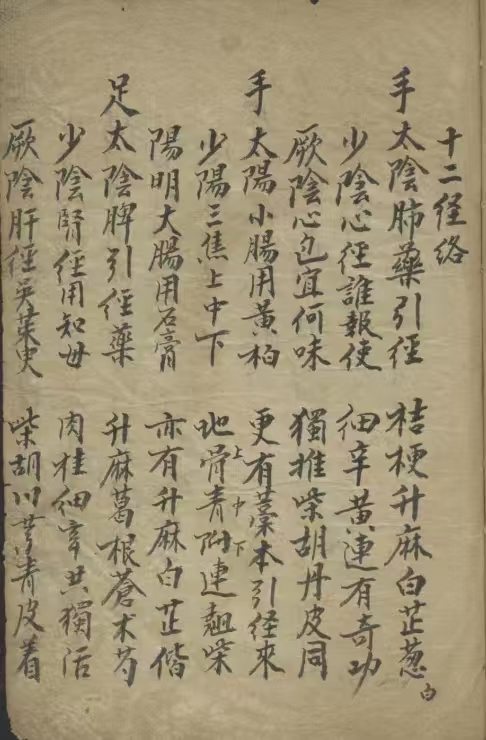 十二径络
手太陰肺藥引径 桔梗升麻白芷葱白
少陰心径誰報使 细辛黄連有奇功
厥陰心包宜何味 獨推柴胡丹皮同
手太陽小腸用黄柏 更有藁本引径來
少陽三焦上中下 地骨上青附中連翹下柴
陽明大腸用石膏 亦有升麻白芷偕
足太陰脾引径藥 升麻葛根蒼术芍
少陰腎径用知母 肉桂细辛共獨活
厥陰肝径吴茱 柴胡川芎青皮着